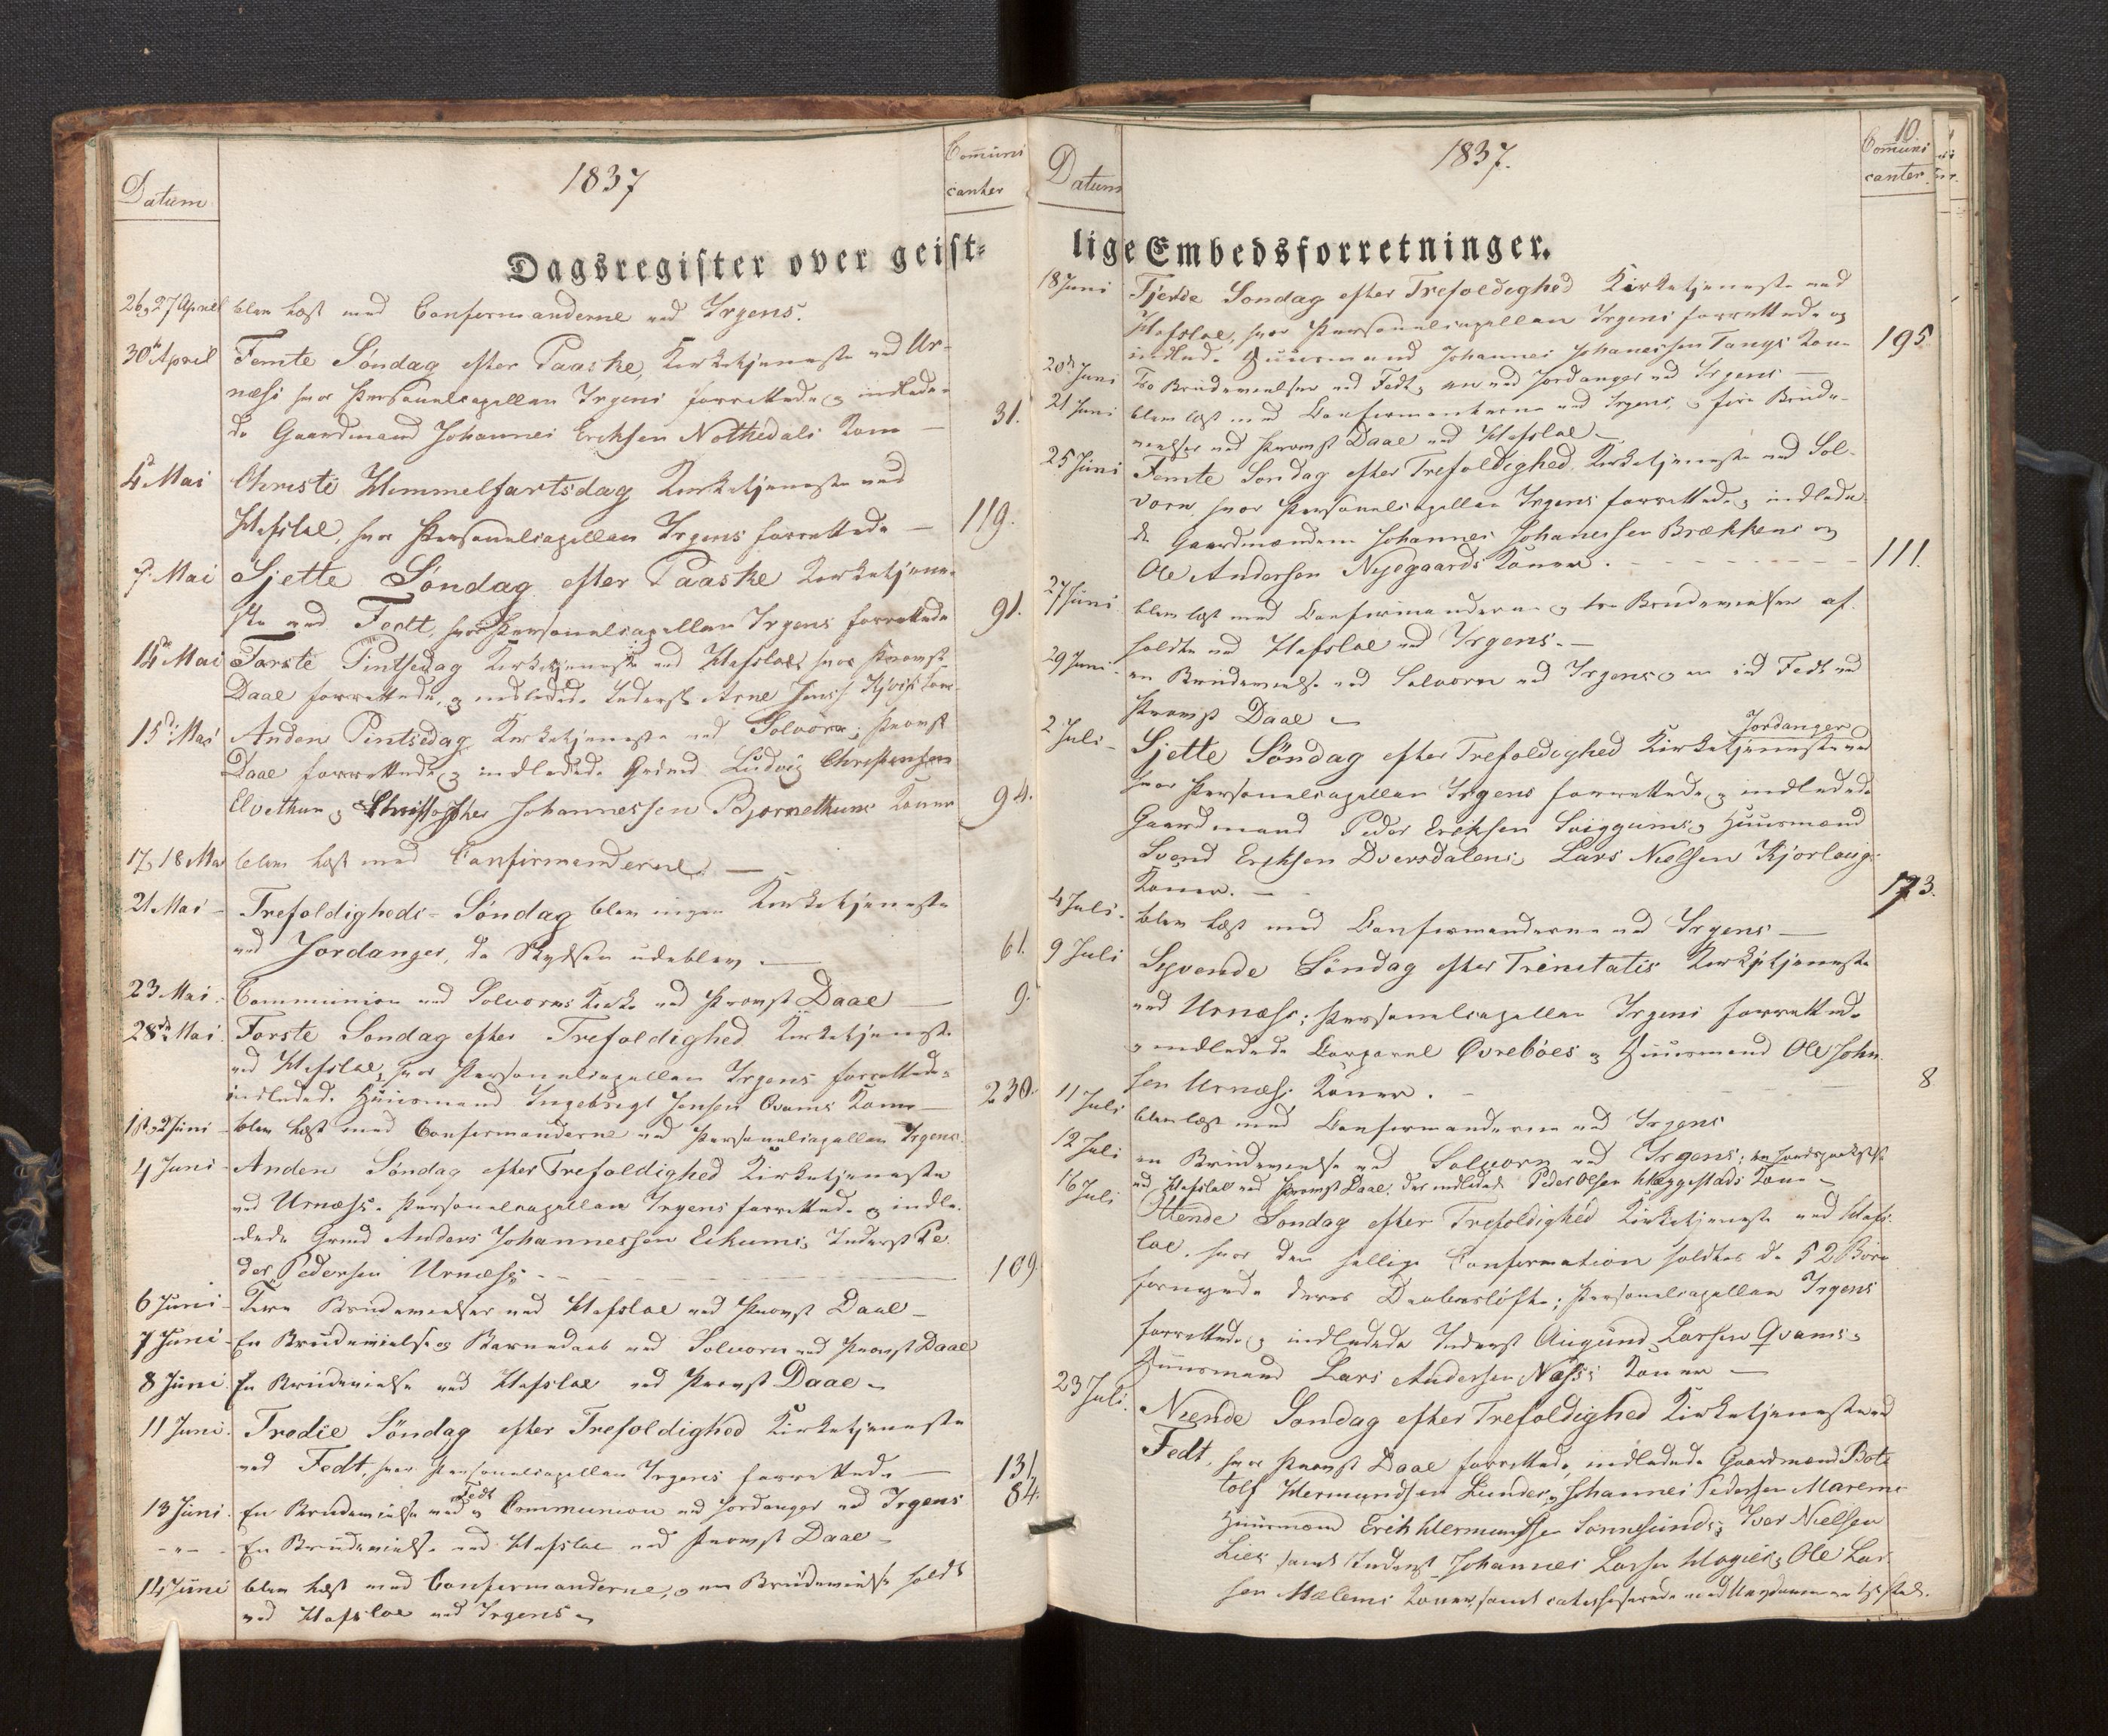 1837
Datum
Communi
canter
Dagsregister over geist-
26 & 27 April blev læst med Confirmanderne ved Irgens.
30te April Femte Søndag efter Paaske, Kirketjeneste ved Ur-
næss hvor Personelcapellan Irgens forrettede og indlede-
de Gaardmand Johannes Ericksen Nottredals Kone — 31.
4de Mai Christi Himmelfartsdag Kirketjeneste ved
Hafsloe, hvor Personelcapellan Irgens forrettede — 119.
7. Mai Sjette Søndag efter Paaske Kirketjene-
ste ved Fedt, hvor Personelcapellan Irgens forrettede 91.
14de Mai Første Pintsedag Kirketjeneste ved Hafsloe, hvor Provst
Daae forrettede, og indledede Inderst Arne Jens: Kone
15de Mai Anden Pintsedag Kirketjeneste ved Solvorn; Provst
Daae forrettede og indledede Grdmd Ludvig Christensen
Elvethun & Christopher Johannessen Bjørnethuns Koner 94.
17, 18 Mai blev læst med Confirmanderne —
21 Mai — Trefoldigheds-Søndag blev ingen Kirketjeneste
ved Jordanger, da Skydsen udeblev. — 61.
23 Mai. Communion ved Solvorns Kirke ved Provst Daae — 9.
28de Mai. Første Søndag efter Trefoldighed Kirketjeneste
ved Hafsloe, hvor Personelcapellan Irgens forrettede
indledede Huusmand Ingebrigt Jensen Qvams Kone — 230.
1 & 2 Juni — blev læst med Confirmanderne ved Personelcapellan Irgens.
4 Juni — Anden Søndag efter Trefoldighed Kirketjeneste
ved Urnæss. Personelcapellan Irgens forrettede og indle-
dede Grmd Anders Johannessen Eikums, Inderst Pe-
der Pedersen Urnæss — 109.
6 Juni — Brudevielser ved Hafsloe ved Provst Daae —
7 Juni — En Brudevielse og Barnedaab ved Solvorn ved Provst Daae
8 Juni. En Brudevielse ved Hafsloe ved Provst Daae —
11 Juni. Tredie Søndag efter Trefoldighed Kirketjeneste
ved Fedt, hvor Personelcapellan Irgens forrettede — 131
13 Juni. En Brudevielse ved Fedt & Communion ved Jordanger ved Irgens 84.
- " - En Brudevielse ved Hafsloe ved Provst Daae —
14 Juni blev læst med Confirmanderne, og en Brudevielse holdt
ved Hafsloe ved Irgens —
1837.
10.
Datum
Communi
canter
lige Embedsforretninger.
18 Juni Fjerde Søndag efter Trefoldighed Kirketjeneste ved
Hafsloe, hvor Personelcapellan Irgens forrettede og
indlede Huusmand Johannes Johannessen Tangs Kone 195
20de Juni To Brudevielser ved Fedt, en ved Jordanger ved Irgens —
21 Juni blev læst med Confirmanterne ved Irgens, & fire Brude-
vielser ved Provst Daae ved Hafsloe —
25 Juni Femte Søndag efter Trefoldighed, Kirketjeneste ved Sol-
vorn, hvor Personelcapellan Irgens forrettede, indlede-
de Gaardmændene Johannes Johannessen Brækkens og
Ole Andersen Nyegaards Koner. — 111.
27 Juni blev læst med Confirmanderne & tre Brudevielser af-
holdte ved Hafsloe ved Irgens. —
29 Juni — en Brudevielse ved Solvorn ved Irgens & en ved Fedt ved
Provst Daae —
2 Juli — Sjette Søndag efter Trefoldighed Kirketjeneste ved Jordanger
hvor Personelcapellan Irgens forrettede, & indledede
Gaardmand Peder Ericksen Sviggums, Huusmænd
Svend Ericksen Dversdalens, Lars Nielsen Kjørlaugs
Koner. — 173.
4 Juli. blev læst med Confirmanderne ved Irgens —
9 Juli Syvende Søndag efter Trinitatis Kirketjeneste
ved Urnæss; Personelcapellan Irgens forrettede
& indledede Corporal Øvrebøes & Huusmand Ole John-
sen Urnæss Koner. — 8
11 Juli blev læst med Confirmanderne ved Irgens
12 Juli en Brudevielse ved Solvorn ved Irgens;
ved Hafsloe ved Provst Daae, der indledede Peder Olsen Kone —
16 Juli Ottende Søndag efter Trefoldighed Kirketjeneste ved Hafs-
loe, hvor den hellige Confirmation holdtes da 52 Børn
fornyede deres Daabesløfte; Personelcapellan Irgens
forrettede, & indledede Inderst Augund Larsen Qvams &
Huusmand Lars Andersen Næss's Koner —
23 Juli. Niende Søndag efter Trefoldighed Kirketjeneste ved
Fedt, hvor Provst Daae forrettede, indledede Gaardmænd Bot-
tolf Hermundsen Lunder, Johannes Pedersen Marems
Huusmænd Erich Hermundsen Sonnesunds, Iver Nielsen
Lies samt Inderst Johannes Larsen & Ole Lar-
sen Mælems Koner, samt catechiserede med Ungdommen